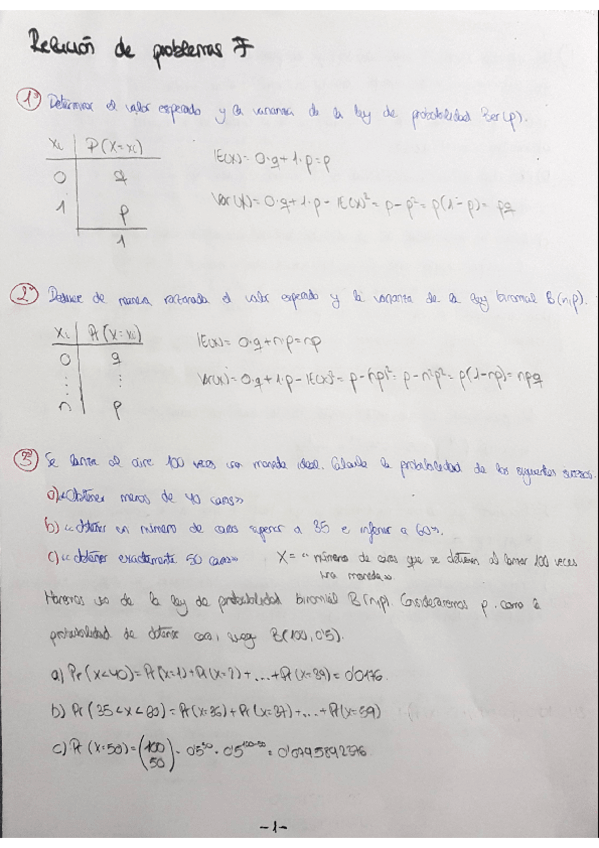 Relación de problemas 7
1º Determinar el valor esperado y la varianza de la ley de probabilidad Ber(p).
xi P(X=xi)
0 q
1 p
1
IE(X) = 0·q + 1·p = p
Var(X) = 0·q + 1·p - IE(X)² = p - p² = p(1-p) = pq
2º Deduce de manera razonada el valor esperado y la varianza de la ley binomial B(n,p).
xi Pr(X=xi)
0 q
n p
IE(X) = 0·q + n·p = np
Var(X) = 0·q + 1·p - IE(X)² = p - (np)² = p - n²p² = p(1-np) = npq
3º Se lanza al aire 100 veces una moneda ideal. Calcule la probabilidad de los siguientes sucesos.
a) «Obtener menos de 40 caras»
b) «obtener un número de caras superior a 35 e inferior a 60».
c) «obtener exactamente 50 caras» X = «número de caras que se obtienen al lanzar 100 veces
una moneda»
Haremos uso de la ley de probabilidad binomial B(n,p). Consideraremos p como la
probabilidad de obtener cara, luego B(100, 0'5).
a) Pr(x<40) = Pr(x=1) + Pr(x=2) + ... + Pr(x=39) = 0'0176.
b) Pr(35<x<60) = Pr(x=36) + Pr(x=37) + ... + Pr(x=59)
c) Pr(X=50) = (100 50) · 0'5⁵⁰ · 0'5¹⁰⁰⁻⁵⁰ = 0'0795892376
-1-